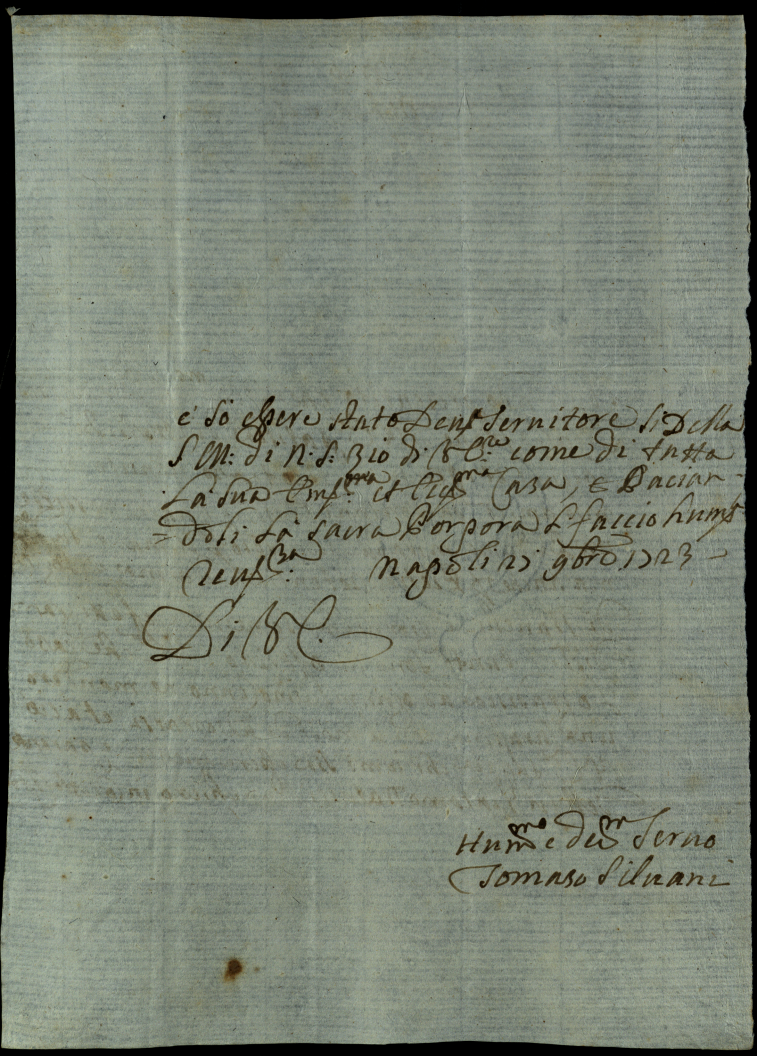 e so essere stato Deuᵐᵒ seruitore si Della
S M: di N: S: Zio di V E:ⁿᶻᵃ come di tutta
La sua Emᵐᵃ et Ecᵐᵃ Casa, e Bacian=
=doli La sacra Porpora Le faccio humᵐᵃ
Reuᶻᵃ. Napoli 27 9bre 1723
Di V E.
Humᵐᵒ e deuᵐᵒ Seruo
Tomaso Siluani